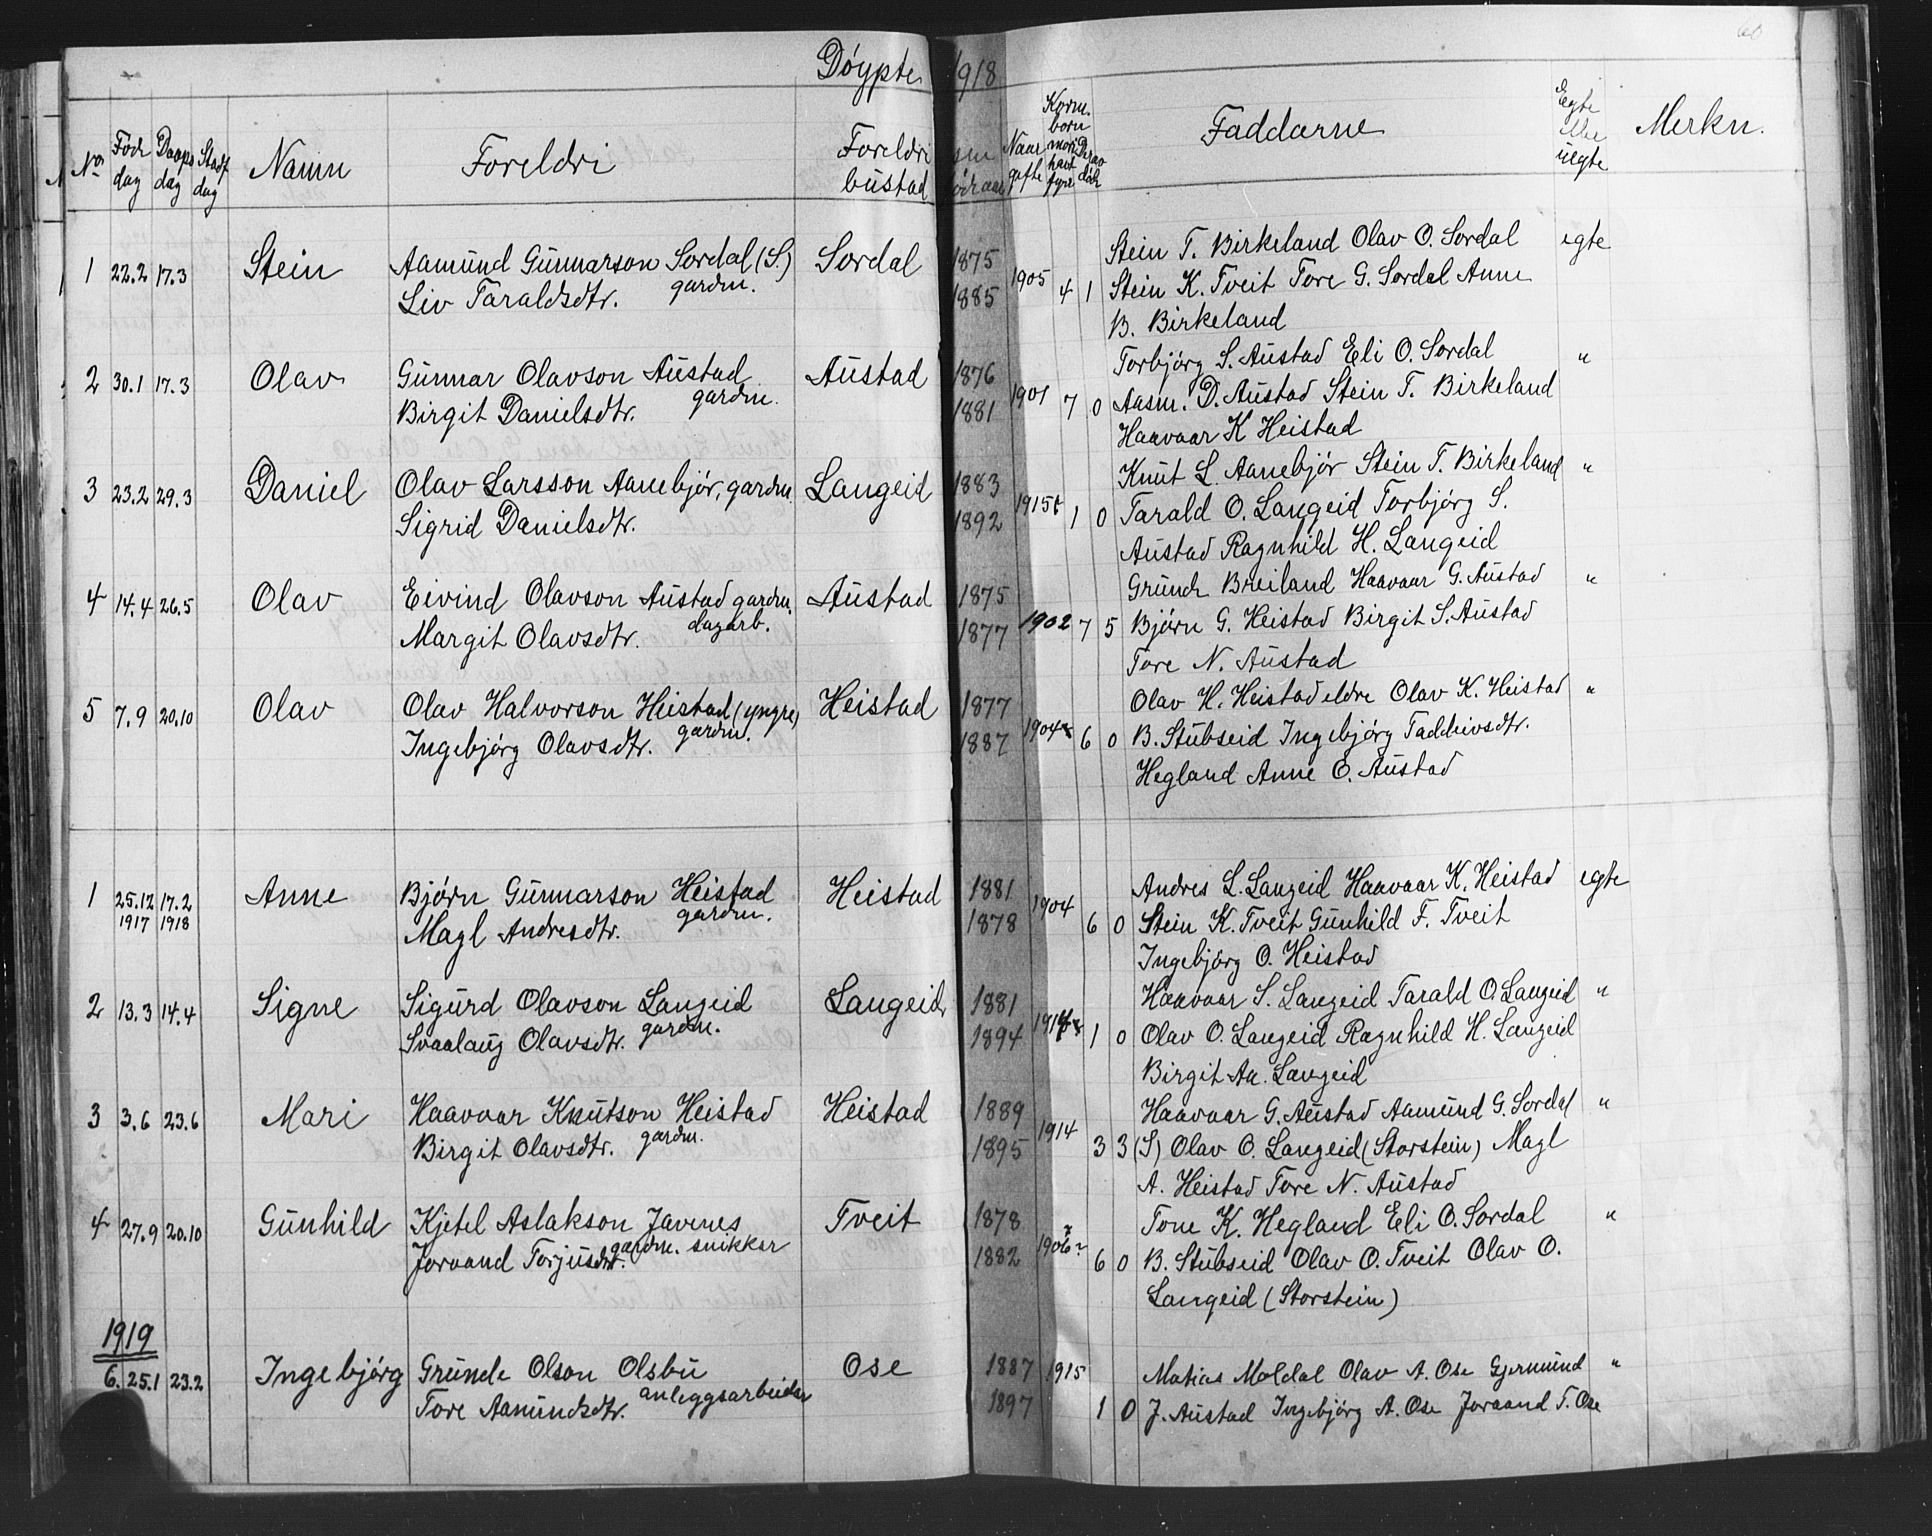 60
Døypte 1918
No Fødedag Daapsdag Stadf dag Namn Foreldri Foreldri bustad Naar gifte Egte elle uegte
Faddarne Merkn.
1 22.2 17.3 Stein Aamund Gunnarson Sordal (S.) gardm. Sordal 1875 Stein T. Birkeland Olav O. Sordal egte
Liv Taraldsdtr. 1885 1905 4 1 Stein K. Tveit Tore G. Sordal Anne
B. Birkeland
2 30.1 17.3 Olav Gunnar Olavson Austad gardm. Austad 1876 Torbjørg S. Austad Eli O. Sordal "
Birgit Danielsdtr. 1881 1901 7 0 Aasm. D. Austad Stein T. Birkeland
Haavaar K Heistad
3 23.2 29.3 Daniel Olav Larsson Aanebjør, gardm. Langeid 1883 Knut L. Aanebjør Stein T. Birkeland "
Sigrid Danielsdtr. 1892 1915 1 0 Tarald O. Langeid Torbjørg S.
Austad Ragnhild H. Langeid
4 14.4 26.5 Olav Eivind Olavson Austad gardm. dagarb. Austad 1875 Grunde Breiland Haavaar G. Austad "
Margit Olavsdtr. 1877 1902 7 5 Bjørn G. Heistad Birgit S. Austad
Tore N. Austad
5 7.9 20.10 Olav Olav Halvorson Heistad (yngre) gardm. Heistad 1877 Olav H. Heistad eldre Olav K. Heistad "
Ingebjørg Olavsdtr. 1887 1904 6 0 B. Stubseid Ingebjørg Taddeivsdtr.
Hegland Anne O. Austad
1 25.12 1917 17.2 1918 Anne Bjørn Gunnarson Heistad gardm. Heistad 1881 Andres L. Langeid Haavaar K. Heistad egte
Magl Andresdtr. 1878 1904 6 0 Stein K. Tveit Gunhild F. Tveit
Ingebjørg O. Heistad
2 13.3 14.4 Signe Sigurd Olavson Langeid gardm. Langeid 1881 Haavaar S. Langeid Tarald O. Langeid "
Svaalaug Olavsdtr. 1894 1 0 Olav O. Langeid Ragnhild H. Langeid
Birgit Aa. Langeid
3 3.6 23.6 Mari Haavaar Knutson Heistad gardm. Heistad 1889 Haavaar G. Austad Aamund G. Sordal "
Birgit Olavsdtr. 1895 1914 3 3 (S) Olav O. Langeid (Storstein) Magl
A. Heistad Tore N. Austad
4 27.9 20.10 Gunhild Kjetel Aslakson Javnes gardm. snikkar Tveit 1878 Tone K. Hegland Eli O. Sordal "
Joraand Torjusdtr. 1882 6 0 B. Stubseid Olav O. Tveit Olav O.
Langeid (Storstein)
1919
6. 25.1 23.2 Ingebjørg Grunde Olson Olsbu anleggsarbeider Ose 1887 1915 Matias Moldal Olav A. Ose Gjermund "
Tore Aamundsdtr. 1897 1 0 J. Austad Ingebjørg A. Ose Joraand T. Ose